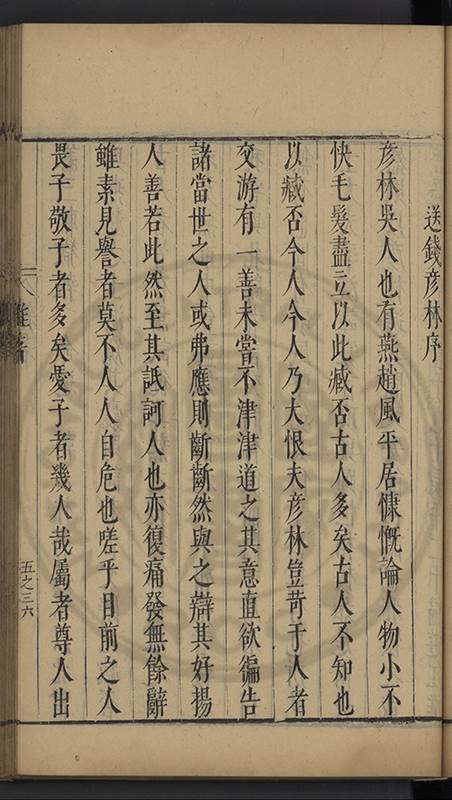 送錢彥林序
彥林吳人也有燕趙風平居慷慨論人物小不
快毛髮盡立以此臧否古人多矣古人不知也
以臧否今人今人乃大恨夫彥林豈苛于人者
交游有一善未嘗不津津道之其意直欲徧告
諸當世之人或弗應則齗齗然與之辯其好揚
人善若此然至其詆訶人也亦復痛發無餘辭
雖素見譽者莫不人人自危也嗟乎目前之人
畏子敬子者多矣愛子者幾人哉屬者尊人出
雜著
五之三六